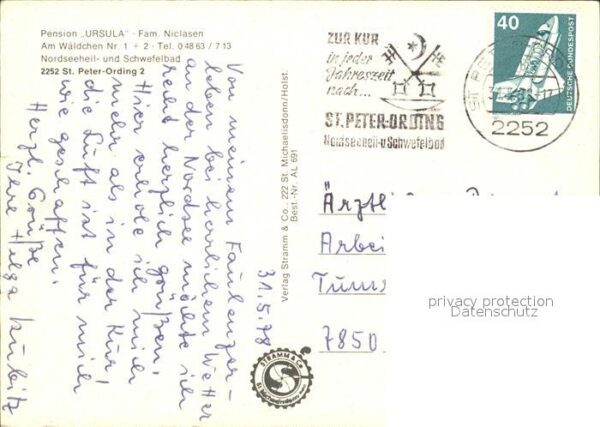 Pension „URSULA" · Fam. Niclasen
Am Wäldchen Nr 1 + 2 · Tel. 0 48 63 / 7 13
Nordseeheil- und Schwefelbad
2252 St. Peter-Ording 2
Von meinem Faulenzer-
leben bei herrlichem Wetter
an der Nordsee möchte ich
recht herzlich grüßen.
Hier erhole ich mich
mehr als in der Kur!
die Luft ist für mich
wie geschaffen.
Herzl. Grüße
Ihre Helga Kubitz
31.5.78
Verlag Stramm & Co., 222 St. Michaelisdonn/Holst.
Best.-Nr. AL 691
STRAMM & Co
St. Michaelisdonn
ZUR KUR
in jeder
Jahreszeit
nach...
ST. PETER-ORDING
Nordseeheil-u Schwefelbad
2252
40
DEUTSCHE BUNDESPOST
Ärztl
Arbei
Tum
7850
privacy protection
Datenschutz